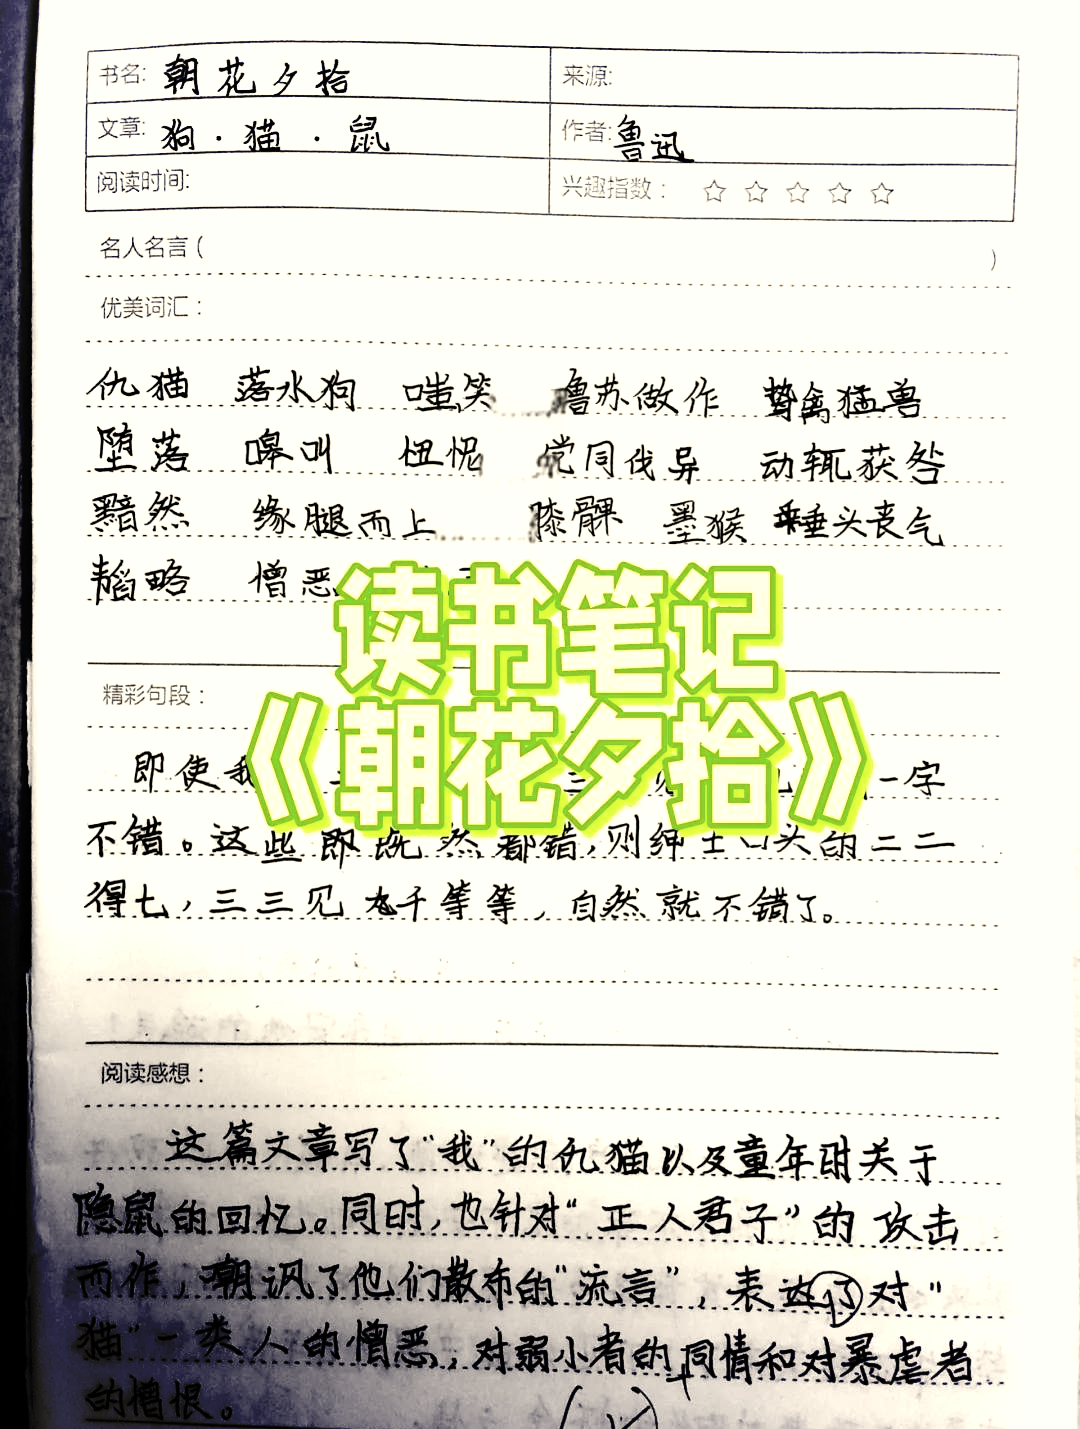 书名: 朝花夕拾 来源:
文章: 狗·猫·鼠 作者: 鲁迅
阅读时间: 兴趣指数: ☆ ☆ ☆ ☆ ☆
名人名言 ( )
优美词汇:
仇猫 落水狗 嗤笑 噜苏做作 鸷禽猛兽
堕落 嗥叫 忸怩 党同伐异 动辄获咎
黯然 缘腿而上 膝髁 墨猴 垂头丧气
韬略 憎恶
读书笔记
《朝花夕拾》
精彩句段:
即使我 三 见 一字
不错。这些即既然都错,则绅士口头的二二
得七,三三见千等等,自然就不错了。
阅读感想:
这篇文章写了"我"的仇猫以及童年时关于
隐鼠的回忆。同时,也针对"正人君子"的攻击
而作,嘲讽了他们散布的"流言",表达了对"
猫"一类人的憎恶,对弱小者的同情和对暴虐者
的憎恨。